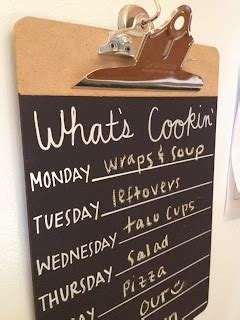 What's Cookin'
MONDAY wraps & soup
TUESDAY leftovers
WEDNESDAY taco cups
THURSDAY salad
pizza
out